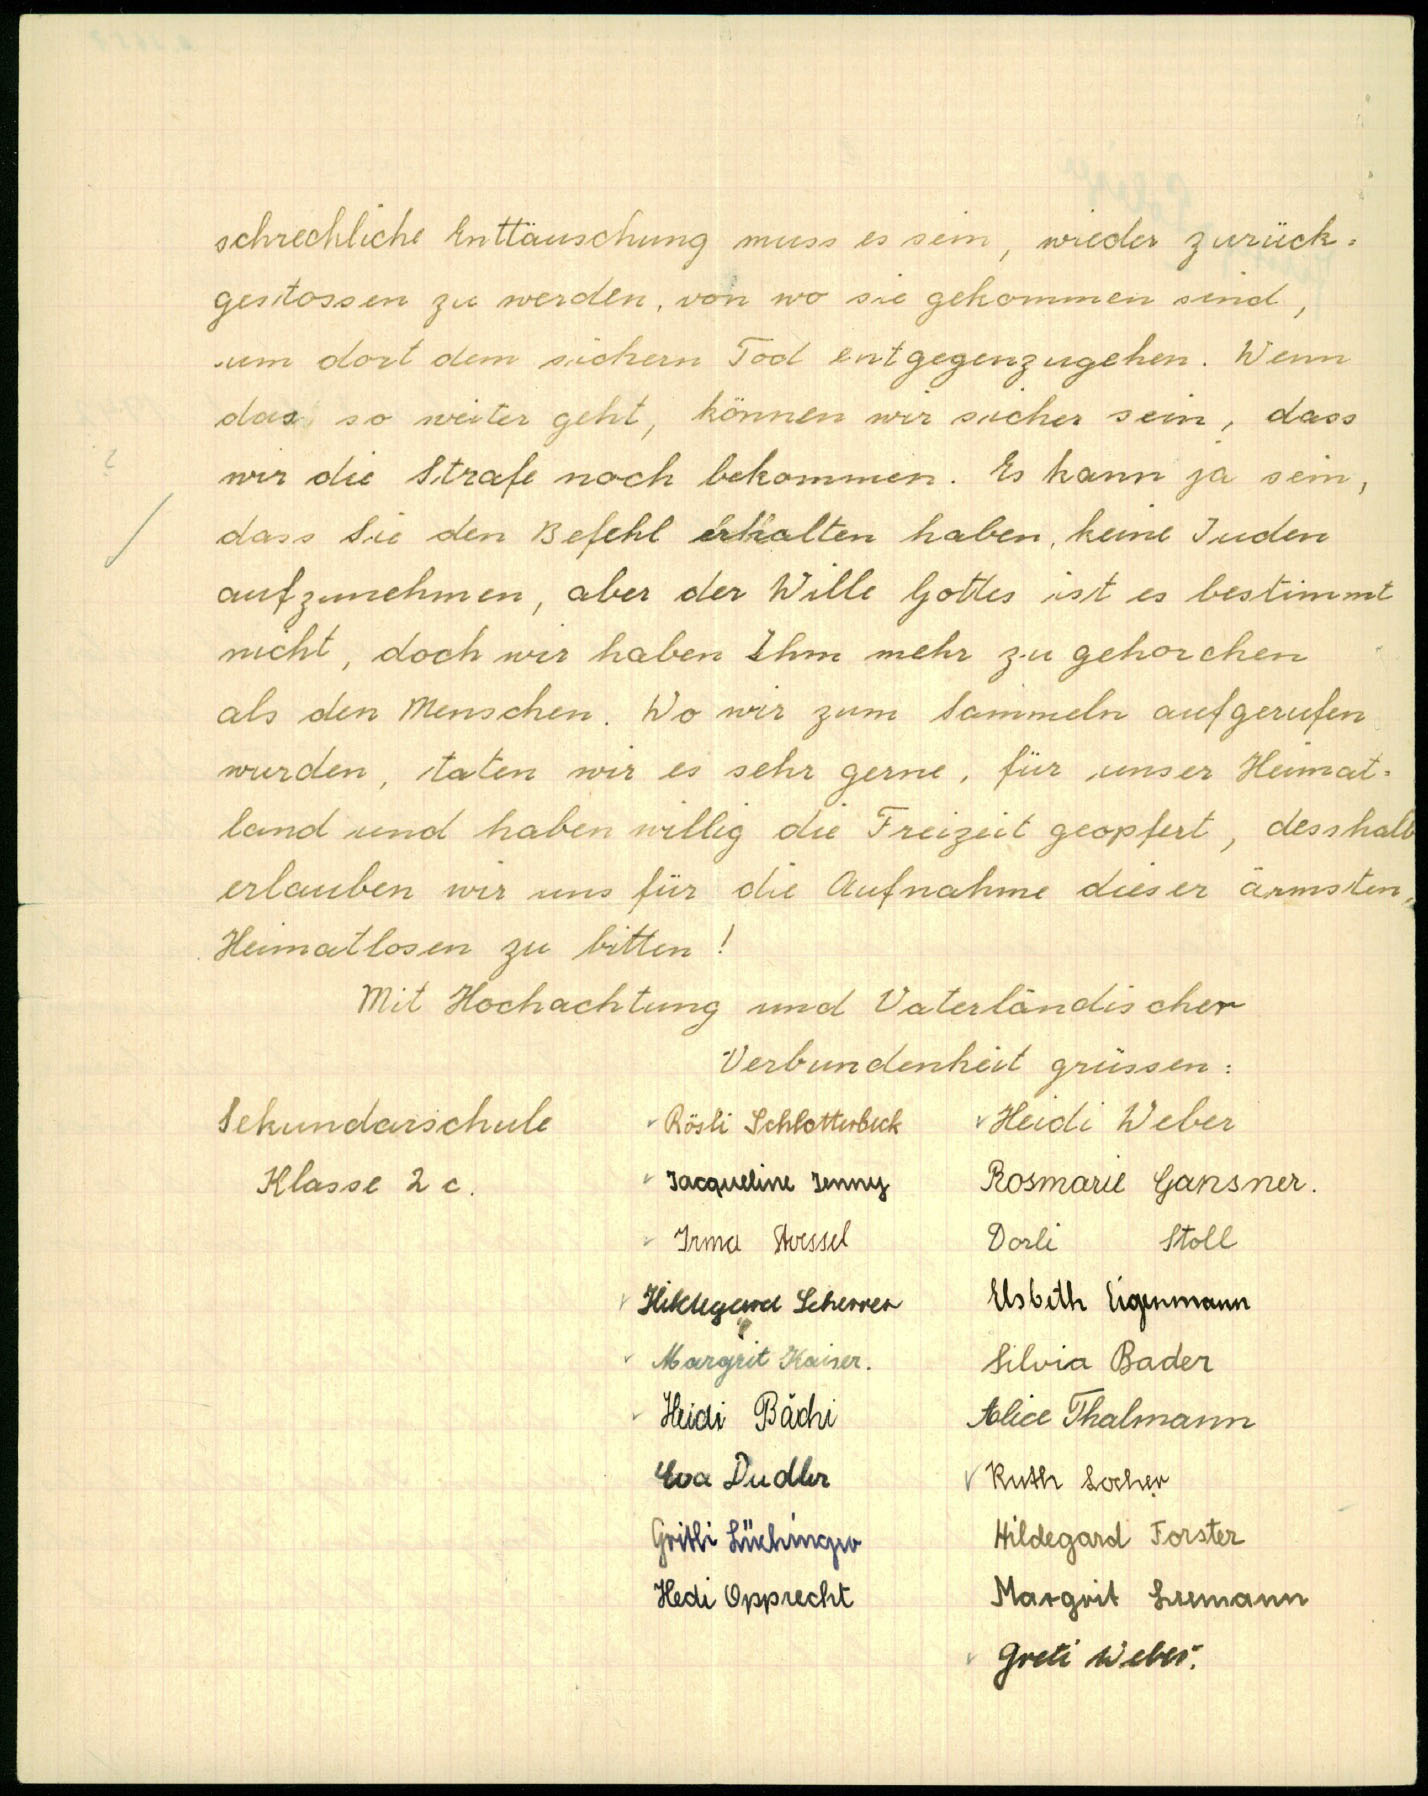 schreckliche Enttäuschung muss es sein, wieder zurück-
gestossen zu werden, von wo sie gekommen sind,
um dort dem sichern Tod entgegenzugehen. Wenn
das so weiter geht, können wir sicher sein, dass
wir die Strafe noch bekommen. Es kann ja sein,
dass Sie den Befehl erhalten haben, keine Juden
aufzunehmen, aber der Wille Gottes ist es bestimmt
nicht, doch wir haben Ihm mehr zu gehorchen
als den Menschen. Wo wir zum Sammeln aufgerufen
wurden, taten wir es sehr gerne, für unser Heimat-
land und haben willig die Freizeit geopfert, desshalb
erlauben wir uns für die Aufnahme dieser ärmsten,
Heimatlosen zu bitten!
Mit Hochachtung und Vaterländischer
Verbundenheit grüssen:
Sekundarschule
Klasse 2c.
Rösli Schlotterbeck
Jacqueline Jenny
Irma
Hildegard Scherrer
Margrit Kaiser.
Heidi Bächi
Eva Dudler
Gritli Lüchinger
Hedi Opprecht
Heidi Weber
Rosmarie Gansner.
Dorli Stoll
Elsbeth Eigenmann
Silvia Bader
Alice Thalmann
Ruth Locher
Hildegard Forster
Margrit Leemann
Greti Weber.